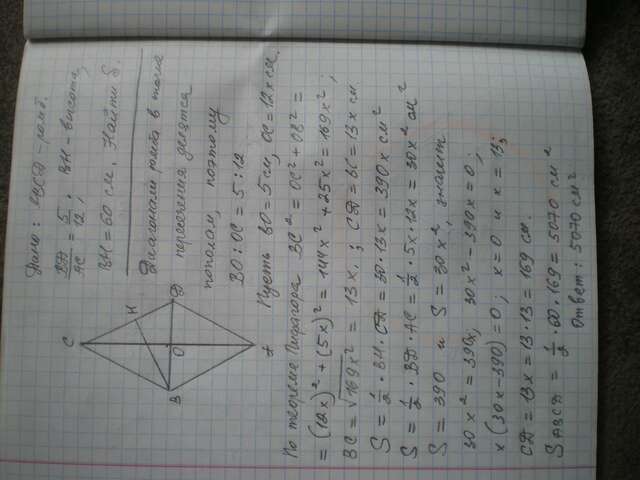 Дано: ABCD - ромб.
BD/AC = 5/12, BH - высота,
BH = 60 см. Найти S.
C
H
B
O
D
A
Диагонали ромба в точке
пересечения делятся
пополам, поэтому
BO : OC = 5 : 12
Пусть BO = 5x см, OC = 12x см.
По теореме Пифагора BC² = OC² + OB² =
= (12x)² + (5x)² = 144x² + 25x² = 169x²;
BC = √169x² = 13x; CD = BC = 13x см.
S = 1/2 · BH · CD = 30 · 13x = 390x см²
S = 1/2 · BD · AC = 1/2 · 5x · 12x = 30x² см²
S = 390 и S = 30x², значит
30x² = 390x; 30x² - 390x = 0;
x(30x - 390) = 0; x = 0 и x = 13;
CD = 13x = 13 · 13 = 169 см.
S ABCD = 1/2 · 60 · 169 = 5070 см²
Ответ: 5070 см².